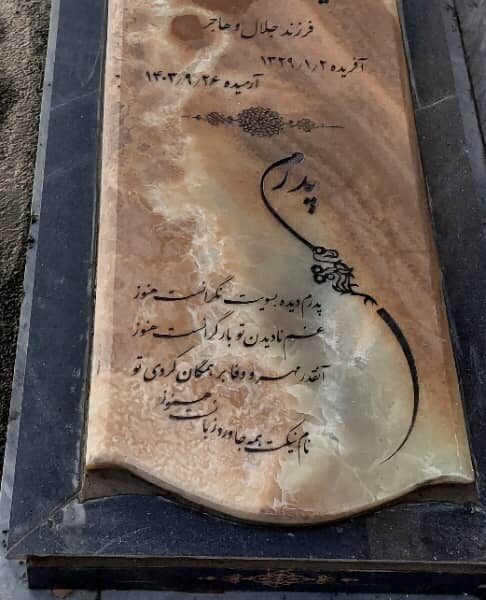 فرزند جلال و هاجر
آفریده ۱۳۲۹/۱/۲
آرمیده ۱۴۰۳/۹/۲۶
پدرم
پدرم دیده بسویت نگرانست هنوز
غم نادیدن تو بار گرانست هنوز
آنقدر مهر و وفا بر همگان کردی تو
نام نیکت همه جا ورد زبانست هنوز